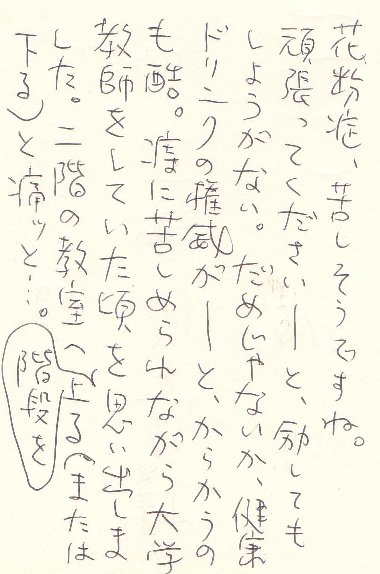 花粉症、苦しそうですね。
頑張ってくださいーと、励しても
しょうがない。だめじゃないか、健康
ドリンクの権威がーと、からかうの
も酷。痔に苦しめられながら大学
教師をしていた頃を思い出しま
した。二階の教室へ上る(または
下る)と痛ッと…。
階段を